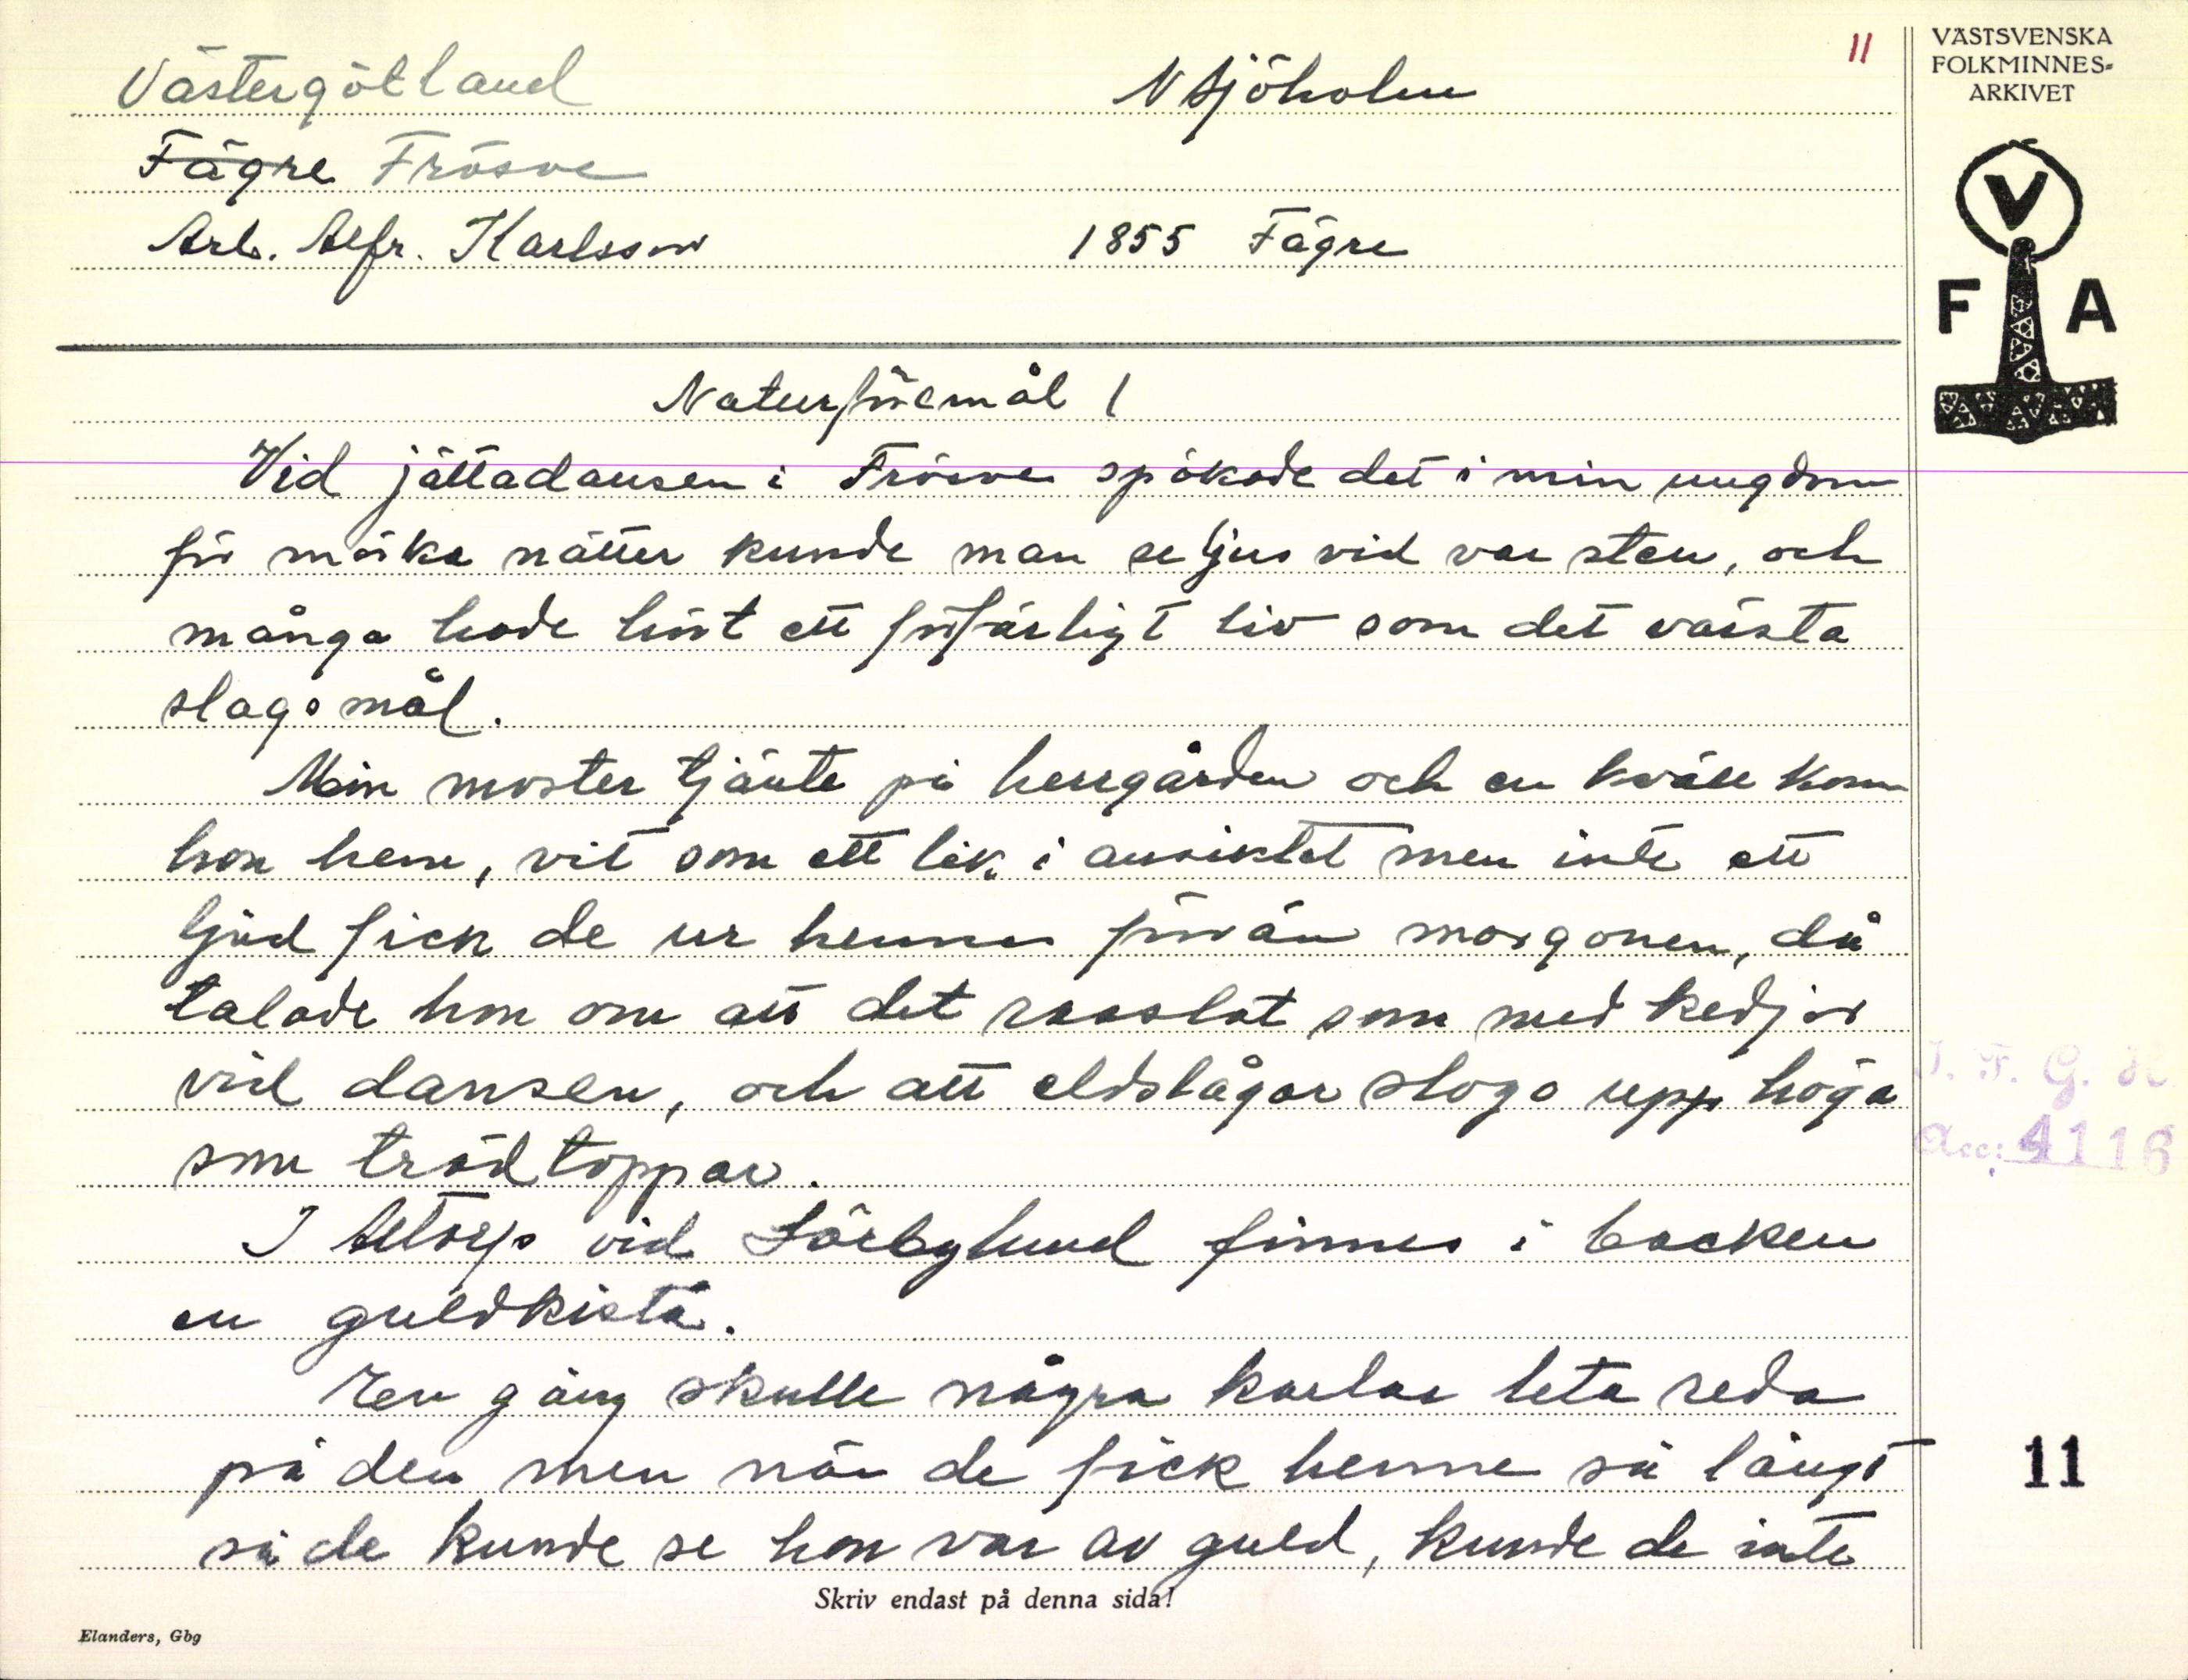 Västergötland
N Sjöholm
11
VÄSTSVENSKA
FOLKMINNES-
ARKIVET
Fägre Frösve
V
Arb. Alfr. Karlsson
1855 Fägre
F A
Naturföremål 1
Vid jättadansen i Frösve spökade det i min ungdom
för mörka nätter kunde man se ljus vid var sten, och
många hade hört ett förfärligt liv som det värsta
slagsmål.
Min moster tjänte på herrgården och en kväll kom
hon hem, vit som ett lik i ansiktet men inte ett
ljud fick de ur henne förrän morgonen, då
talade hon om att det rasslat som med kedjor
vid dansen, och att eldslågor slogo upp höga
som trädtoppar.
I Altorp vid Lörbylund finnes i backen
en guldkista.
En gång skulle några karlar leta reda
på den men när de fick henne så långt
så de kunde se hon var av guld, kunde de inte
I. F. G. H.
Acc: 4116
11
Skriv endast på denna sida!
Elanders, Gbg